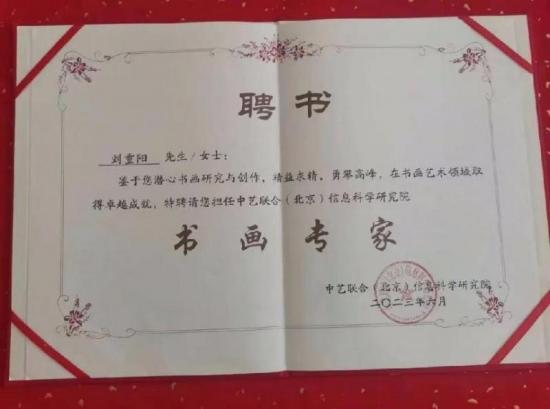 聘书
刘重阳 先生/女士：
鉴于您潜心书画研究与创作，精益求精，勇攀高峰，在书画艺术领域取
得卓越成就，特聘请您担任中艺联合（北京）信息科学研究院
书画专家
中艺联合（北京）信息科学研究院
二〇二三年六月